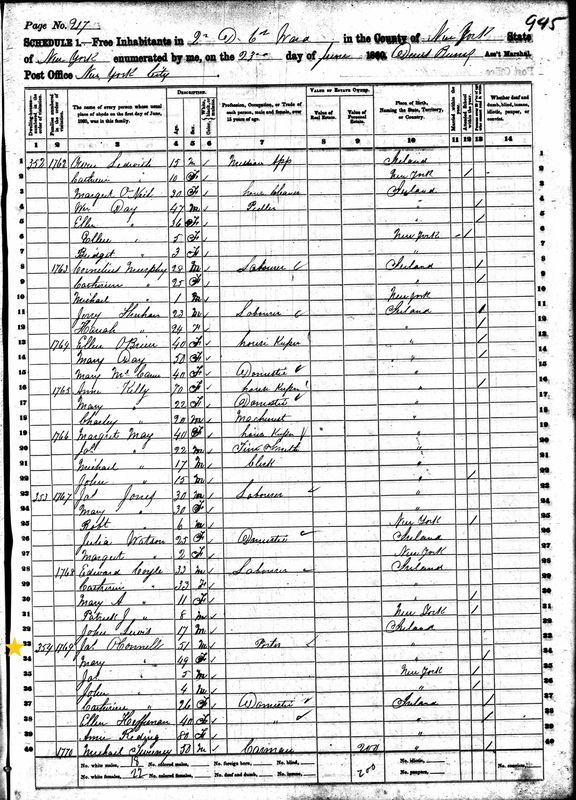 Page No. 217
945
SCHEDULE 1.—Free Inhabitants in 2d D. 6th Ward in the County of New York State
of New York enumerated by me, on the 23rd day of June 1860. Ass't Marshal.
Post Office New York City
Dwelling-houses numbered in the order of visitation.
Families numbered in the order of visitation.
The name of every person whose usual place of abode on the first day of June, 1860, was in this family.
DESCRIPTION.
Age.
Sex.
Profession, Occupation, or Trade of each person, male and female, over 15 years of age.
VALUE OF ESTATE OWNED.
Value of Real Estate.
Value of Personal Estate.
Place of Birth, Naming the State, Territory, or Country.
Married within the year.
Whether deaf and dumb, blind, insane, idiotic, pauper, or convict.
1 2 3 4 5 6 7 8 9 10 11 12 13 14
1 352 1762 Ledwich 15 M App Ireland
2 Catherine " 10 F New York /
3 Margret O'Neil 30 F Cleaner Ireland
4 Wm Day 47 M Pedler " /
5 Ellen " 36 F " /
6 " 5 F New York /
7 Bridget " 3 F "
8 1763 Cornelius Murphy 28 M Labourer Ireland /
9 Catherine " 25 F " /
10 Michael " 1 M New York
11 Jerry 23 M Labourer Ireland /
12 Hanah " 24 F " /
13 1764 Ellen O'Brien 40 F house Keeper " /
14 Mary Day 50 F " /
15 Mary McCann 40 F Domestic "
16 1765 Anne Kelly 70 F house Keeper " /
17 Mary " 22 F Domestic "
18 Charley " 20 M Machinest "
19 1766 Margret May 40 F house Keeper "
20 Jas " 22 M Tin Smith "
21 Michael " 17 M Clerk "
22 John " 15 M " /
23 353 1767 Jas Jones 30 M Labourer "
24 Mary " 30 F "
25 Robt " 6 M New York /
26 Julia Watson 25 F Domestic Ireland
27 Margret " 2 F New York
28 1768 Edward Coyle 33 M Labourer Ireland
29 Catherine " 33 F "
30 Mary A " 11 F " /
31 Patrick J " 8 M New York /
32 John Lewis 17 M Ireland
33 354 1769 Jas O'Connell 51 M Porter "
34 Mary " 49 F " /
35 Jas " 5 M New York /
36 John " 4 M "
37 Catherine " 26 F Domestic Ireland /
38 Ellen Heffernan 40 F " " /
39 Reding 80 F "
40 1770 Michael 50 M Carman 200 " /
No. white males, 18 No. colored males, No. foreign born, No. blind, 200 No. idiotic, No. convicts,
No. white females, 22 No. colored females, No. deaf and dumb, No. insane, No. paupers,